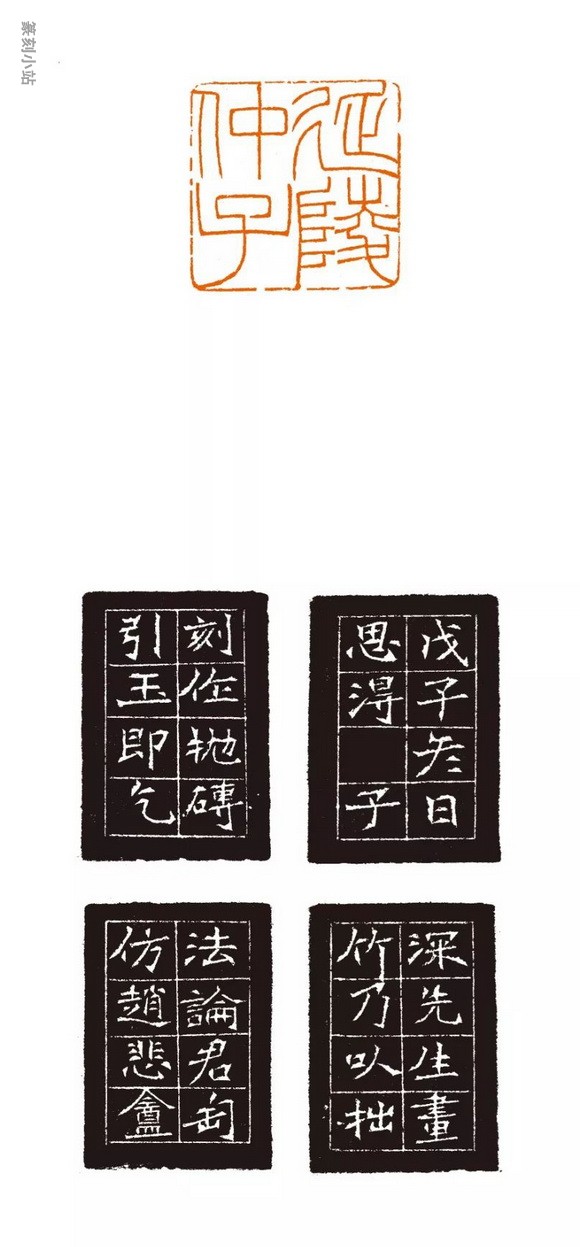 篆刻小站
延陵
仲子
戊子冬日
思得 子
深先生畫
竹乃㕥拙
刻作抛磚
引玉即乞
法論君匋
仿趙悲盦